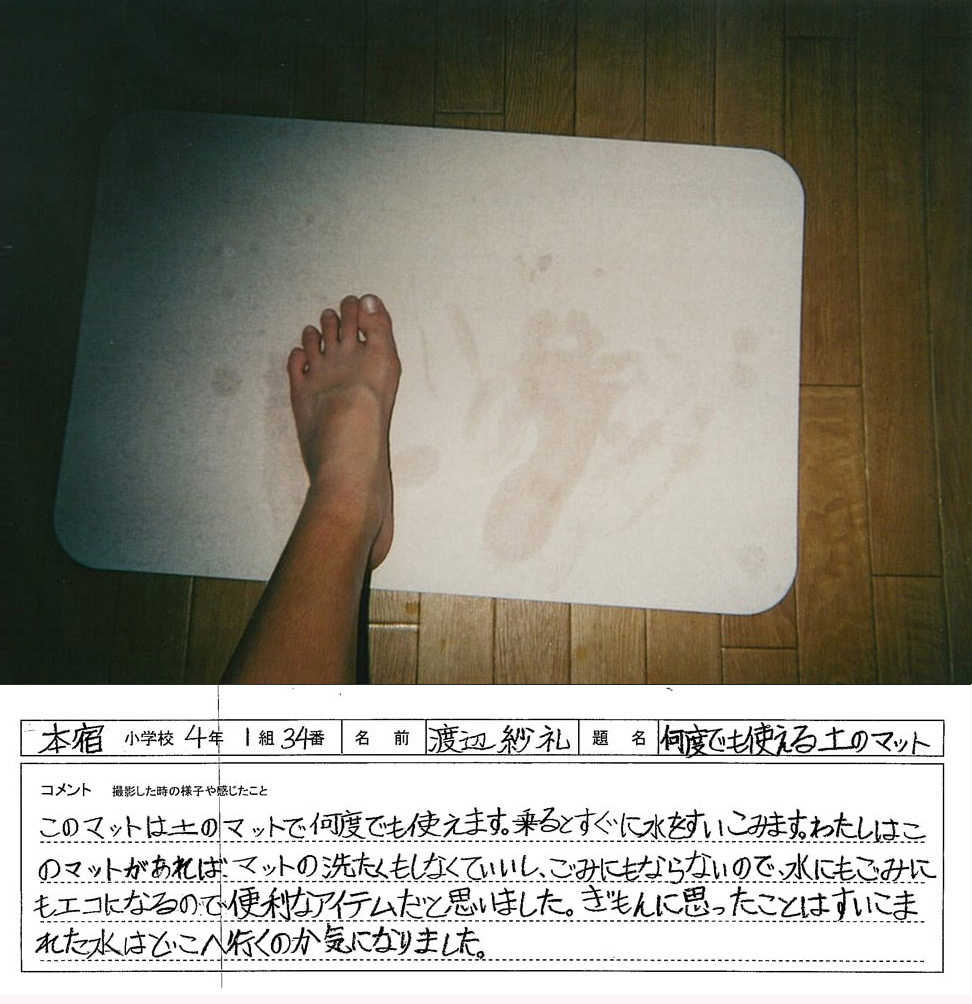 本宿 小学校 4年 1組 34番 名前 渡辺紗礼 題名 何度でも使える土のマット
コメント 撮影した時の様子や感じたこと
このマットは土のマットで何度でも使えます。乗るとすぐに水をすいこみます。わたしはこ
のマットがあれば、マットの洗たくもしなくていいし、ごみにもならないので、水にもごみに
もエコになるので便利なアイテムだと思いました。ぎもんに思ったことはすいこま
れた水はどこへ行くのか気になりました。